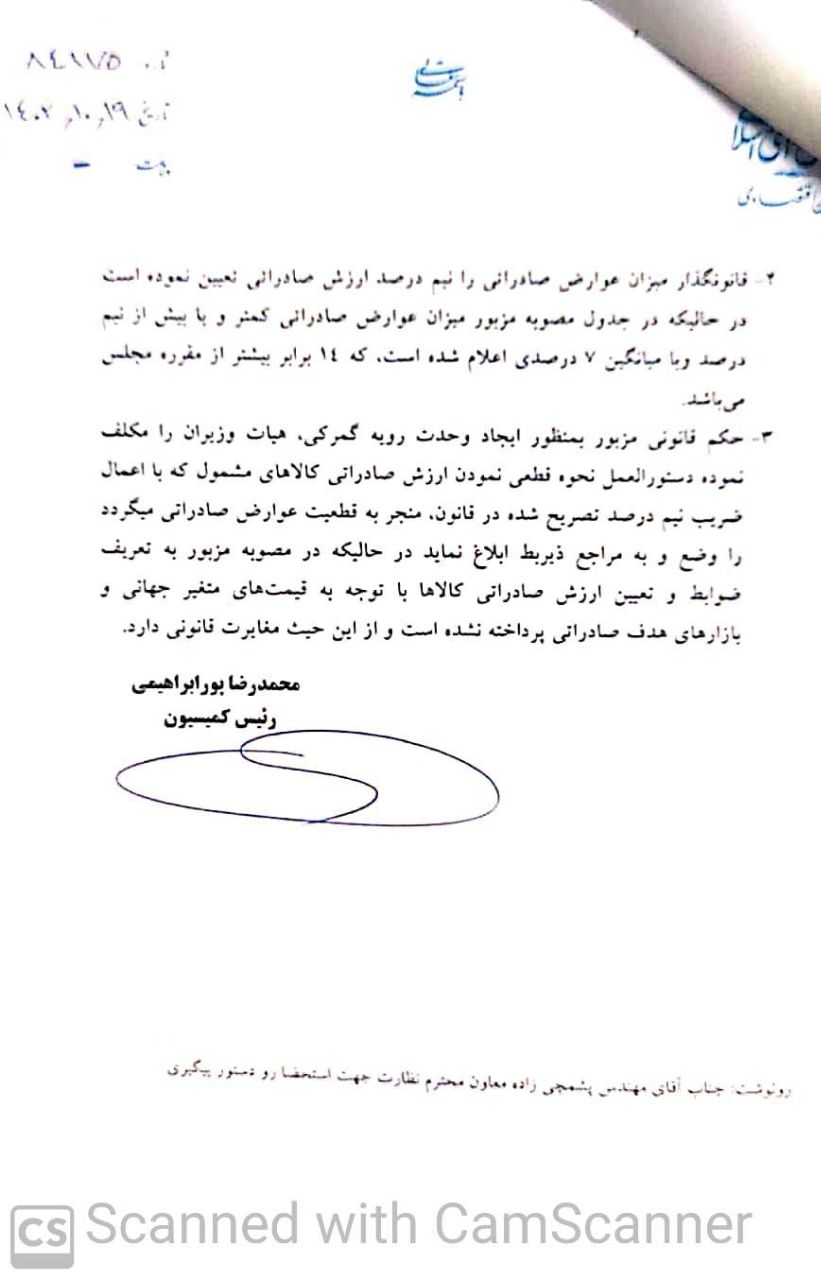 باسمه تعالی
۸۴۱۷۵
تاریخ ۱۴۰۲٫۱۰٫۱۹
-
۲- قانونگذار میزان عوارض صادراتی را نیم درصد ارزش صادراتی تعیین نموده است
در حالیکه در جدول مصوبه مزبور میزان عوارض صادراتی کمتر و یا بیش از نیم
درصد وبا میانگین ۷ درصدی اعلام شده است، که ۱۴ برابر بیشتر از مقرره مجلس
می‌باشد.
۳- حکم قانونی مزبور بمنظور ایجاد وحدت رویه گمرکی، هیات وزیران را مکلف
نموده دستورالعمل نحوه قطعی نمودن ارزش صادراتی کالاهای مشمول که با اعمال
ضریب نیم درصد تصریح شده در قانون، منجر به قطعیت عوارض صادراتی میگردد
را وضع و به مراجع ذیربط ابلاغ نماید در حالیکه در مصوبه مزبور به تعریف
ضوابط و تعیین ارزش صادراتی کالاها با توجه به قیمت‌های متغیر جهانی و
بازارهای هدف صادراتی پرداخته نشده است و از این حیث مغایرت قانونی دارد.
محمدرضا پورابراهیمی
رئیس کمیسیون
رونوشت: جناب آقای مهندس پشمچی زاده معاون محترم نظارت جهت استحضا رو دستور پیگیری
CS Scanned with CamScanner